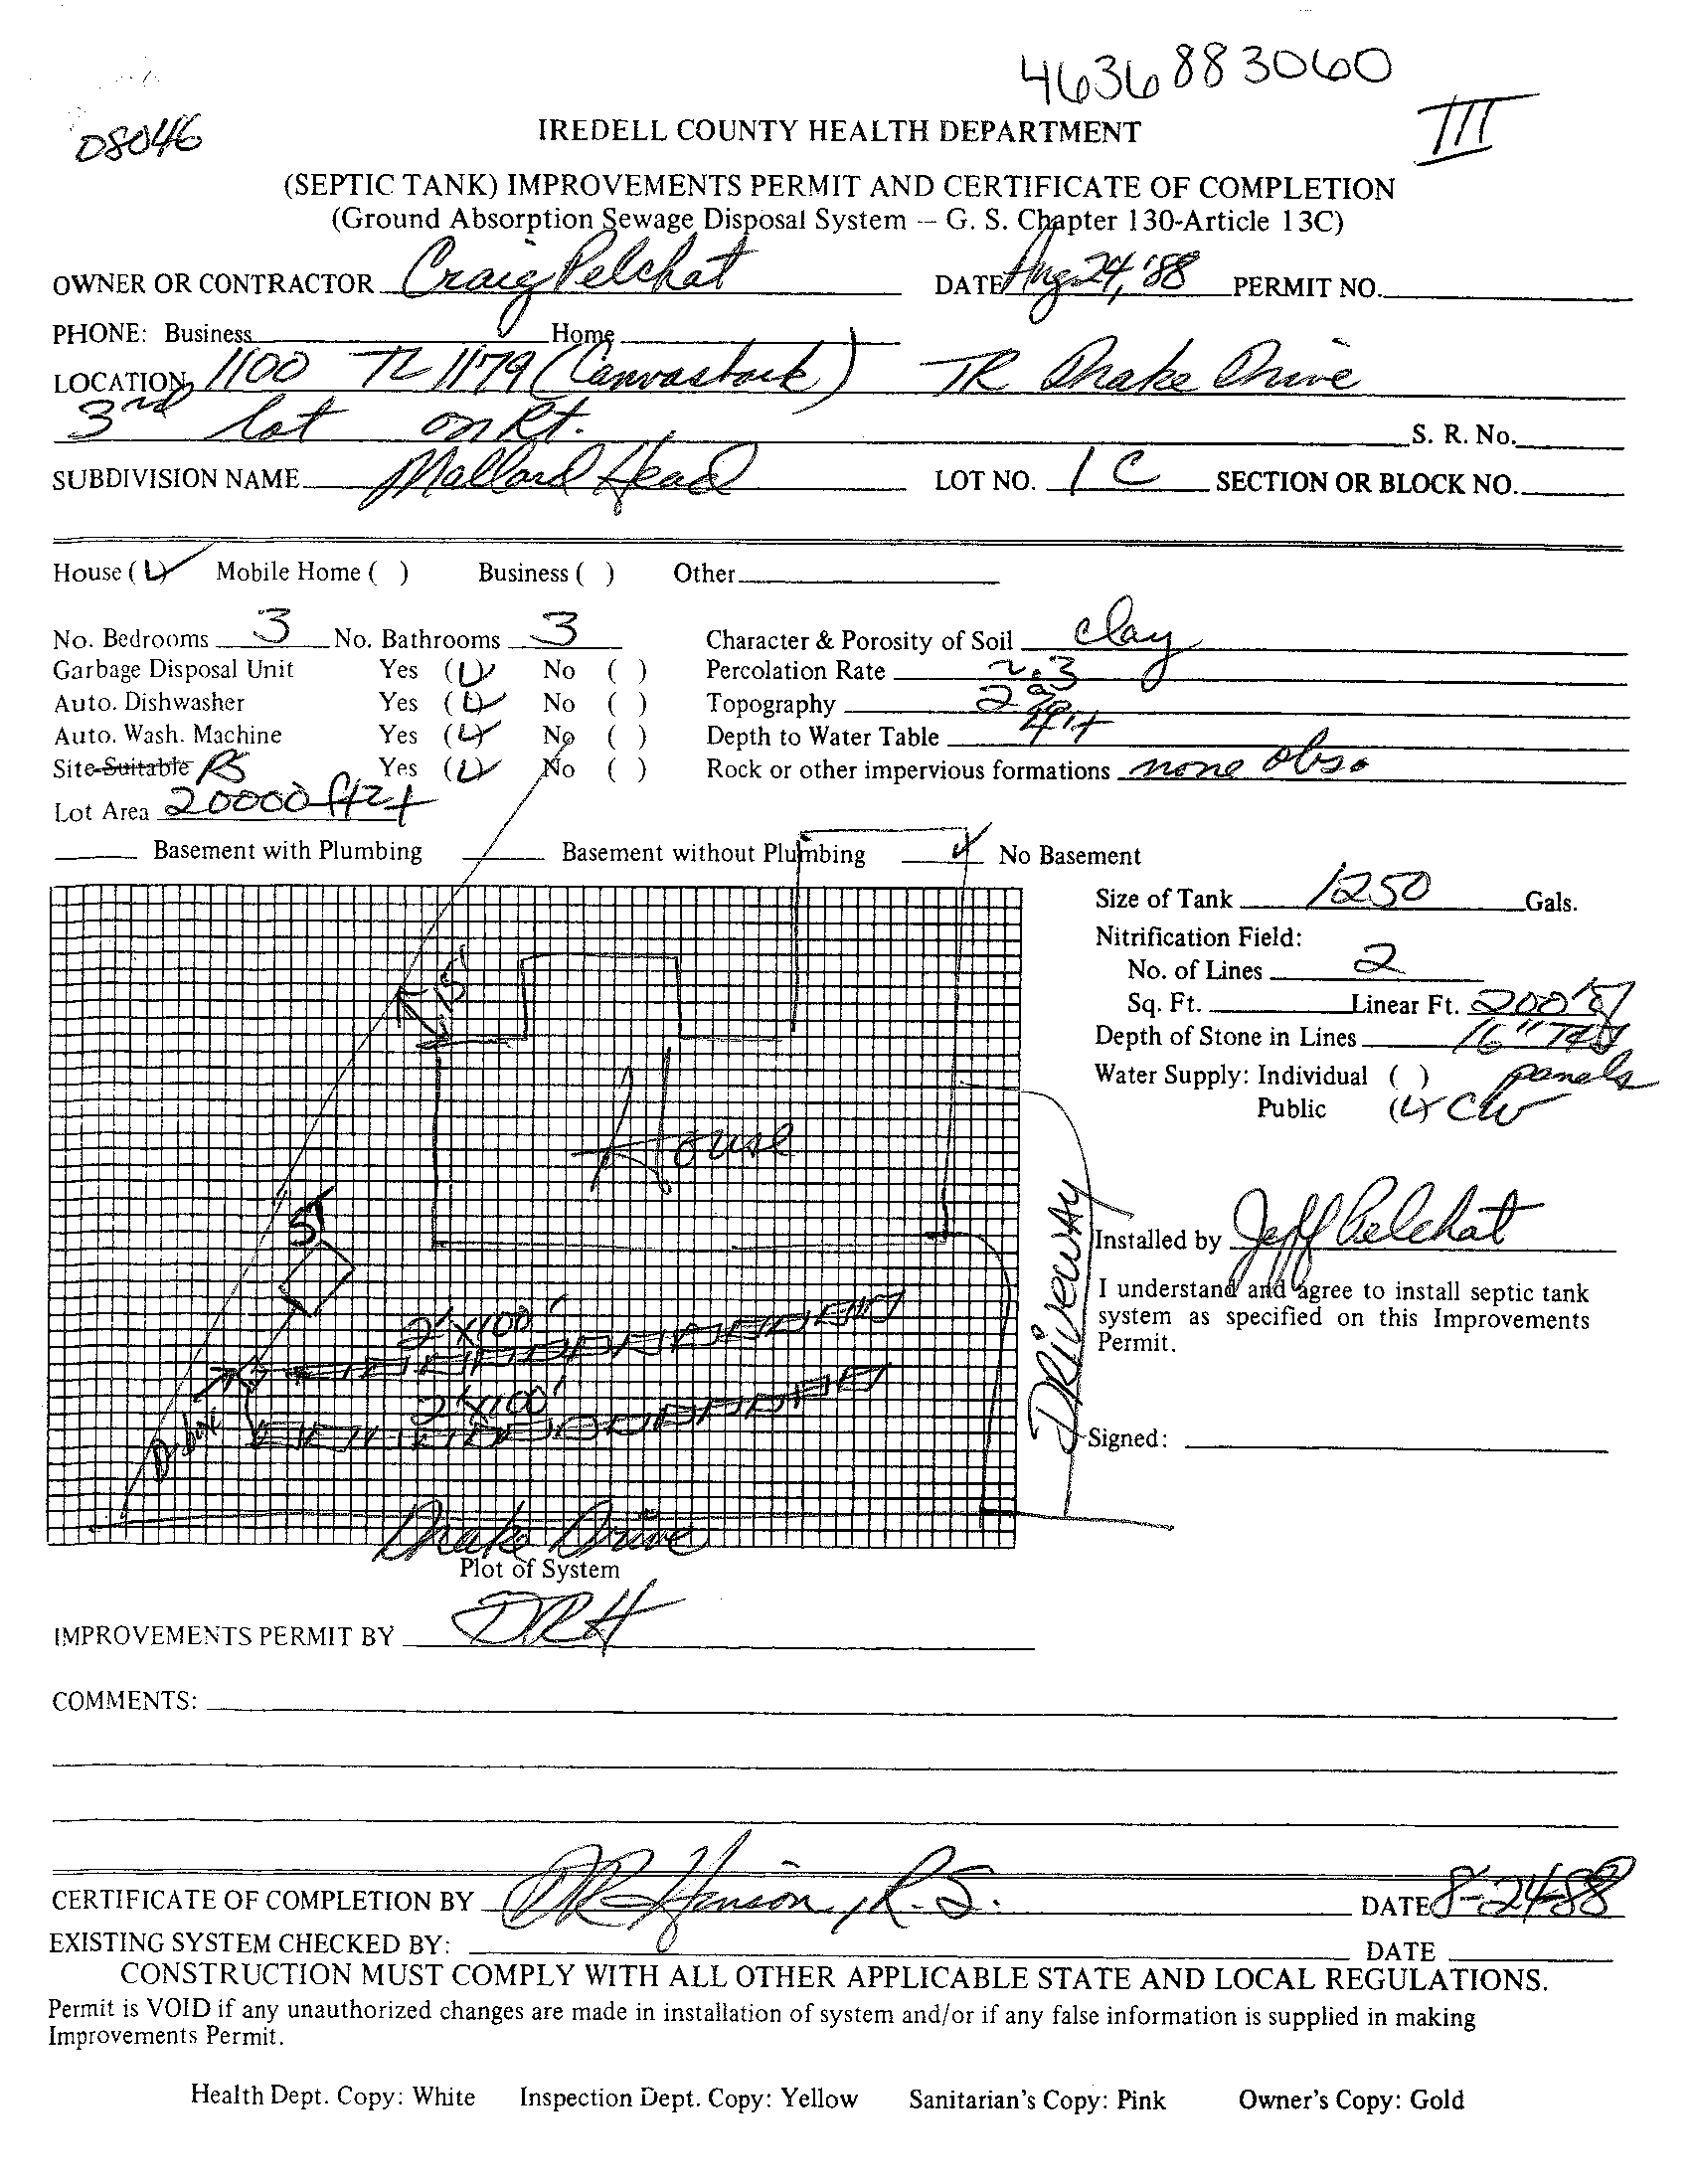 4636883060
III
D8046
IREDELL COUNTY HEALTH DEPARTMENT
(SEPTIC TANK) IMPROVEMENTS PERMIT AND CERTIFICATE OF COMPLETION
(Ground Absorption Sewage Disposal System -- G. S. Chapter 130-Article 13C)
OWNER OR CONTRACTOR Craig Pelchat DATE Aug 24, '88 PERMIT NO.
PHONE: Business Home
LOCATION 1100 TL 1179 (Canvasback) TR Drake Drive
3rd lot on Rt. S. R. No.
SUBDIVISION NAME Mallard Head LOT NO. 1 C SECTION OR BLOCK NO.
House ( ) Mobile Home ( ) Business ( ) Other
No. Bedrooms 3 No. Bathrooms 3 Character & Porosity of Soil clay
Garbage Disposal Unit Yes ( ) No ( ) Percolation Rate 2.3
Auto. Dishwasher Yes ( ) No ( ) Topography
Auto. Wash. Machine Yes ( ) No ( ) Depth to Water Table 4ft+
Site Suitable PS Yes ( ) No ( ) Rock or other impervious formations none obs.
Lot Area 20000 ft2+
Basement with Plumbing Basement without Plumbing No Basement
Size of Tank 1250 Gals.
Nitrification Field:
No. of Lines 2
Sq. Ft. Linear Ft. 200'
Depth of Stone in Lines 16"
panels
Water Supply: Individual ( )
Public ( ) CW
15'
House
5'
2'x100'
2'x100'
D-box
Drake Drive
DRiVEWAY
Installed by Jeff Pelchat
I understand and agree to install septic tank
system as specified on this Improvements
Permit.
Signed:
Plot of System
IMPROVEMENTS PERMIT BY DRH
COMMENTS:
CERTIFICATE OF COMPLETION BY DR Hinson, R.S. DATE 8-24-88
EXISTING SYSTEM CHECKED BY: DATE
CONSTRUCTION MUST COMPLY WITH ALL OTHER APPLICABLE STATE AND LOCAL REGULATIONS.
Permit is VOID if any unauthorized changes are made in installation of system and/or if any false information is supplied in making
Improvements Permit.
Health Dept. Copy: White Inspection Dept. Copy: Yellow Sanitarian's Copy: Pink Owner's Copy: Gold